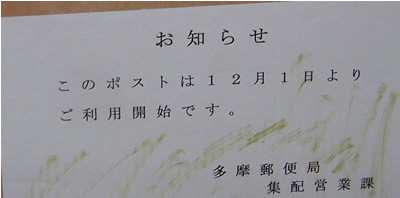 お知らせ
このポストは１２月１日より
ご利用開始です。
多摩郵便局
集配営業課